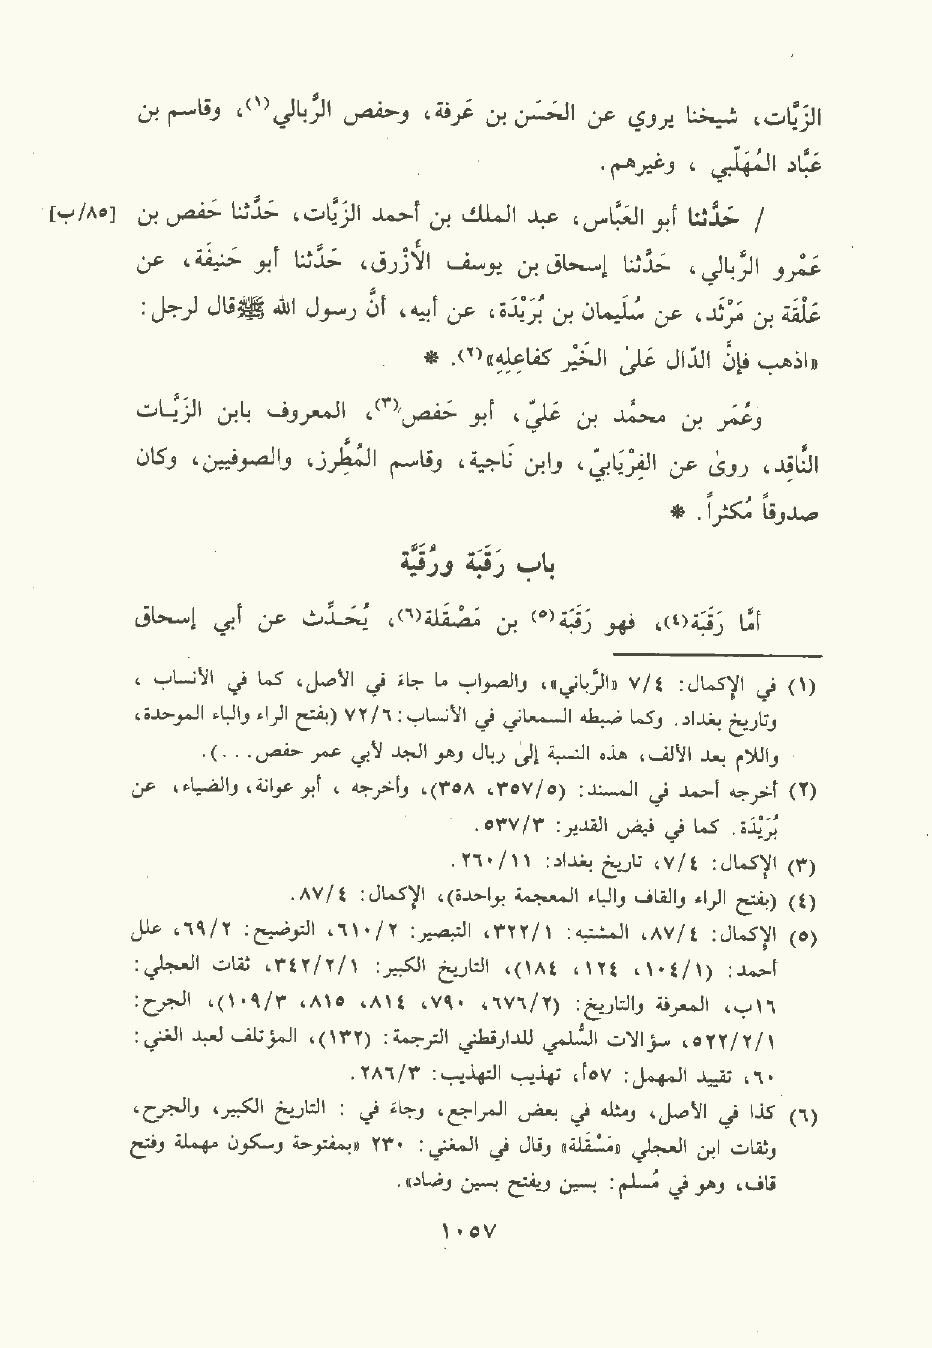 الزَيَّات، شيخنا يروي عن الحَسَن بن عَرفة، وحفص الرَّبالي(١)، وقاسم بن
عَبَّاد المُهَلَّبي ، وغيرهم.
/ حَدَّثنا أبو العَبَّاس، عبد الملك بن أحمد الزَيَّات، حَدَّثنا حَفص بن [٨٥/ب]
عَمْرو الرَّبالي، حَدَّثنا إسحاق بن يوسف الأزْرق، حَدَّثنا أبو حَنيفَة، عن
عَلْقَة بن مَرْثَد، عن سُلَيمان بن بُرَيْدَة، عن أبيه، أنَّ رسول الله ﷺ قال لرجل:
«اذهب فإنَّ الدَّال عَلىٰ الخَيْر كفاعلِهِ»(٢). *
وعُمَر بن محمَّد بن عَليّ، أبو حَفص(٣)، المعروف بابن الزَيَّات
النَّاقِد، روىٰ عن الفِرْيَابيّ، وابن ناجية، وقاسم المُطَّرز، والصوفيين، وكان
صدوقاً مُكثراً. *
باب رَقَبَة ورُقَيَّة
أمَّا رَقَبَة(٤)، فهو رَقَبَة(٥) بن مَصْقَلة(٦)، يُحَدِّث عن أبي إسحاق
(١) في الإكمال: ٧/٤ «الرَّباني»، والصواب ما جاء في الأصل، كما في الأنساب ،
وتاريخ بغداد. وكما ضبطه السمعاني في الأنساب: ٧٢/٦ (بفتح الراء والباء الموحدة،
واللام بعد الألف، هذه النسبة إلىٰ ربال وهو الجد لأبي عمر حفص. . .).
(٢) أخرجه أحمد في المسند: (٣٥٧/٥، ٣٥٨)، وأخرجه ، أبو عوانة، والضياء، عن
بُرَيْدَة. كما في فيض القدير: ٥٣٧/٣.
(٣) الإكمال: ٧/٤، تاريخ بغداد: ٢٦٠/١١.
(٤) (بفتح الراء والقاف والباء المعجمة بواحدة)، الإكمال: ٨٧/٤.
(٥) الإكمال: ٨٧/٤، المشتبه: ٣٢٢/١، التبصير: ٦١٠/٢، التوضيح: ٦٩/٢، علل
أحمد: (١٠٤/١، ١٢٤، ١٨٤)، التاريخ الكبير: ٣٤٢/٢/١، ثقات العجلي:
١٦ب، المعرفة والتاريخ: (٦٧٦/٢، ٧٩٠، ٨١٤، ٨١٥، ١٠٩/٣)، الجرح:
٥٢٢/٢/١، سؤالات السُّلمي للدارقطني الترجمة: (١٣٢)، المؤتلف لعبد الغني:
٦٠، تقييد المهمل: ٥٧أ، تهذيب التهذيب: ٢٨٦/٣.
(٦) كذا في الأصل، ومثله في بعض المراجع، وجاء في : التاريخ الكبير، والجرح،
وثقات ابن العجلي «مَسْقَلة» وقال في المغني: ٢٣٠ «بمفتوحة وسكون مهملة وفتح
قاف، وهو في مُسلم: بسين ويفتح بسين وضاد».
١٠٥٧